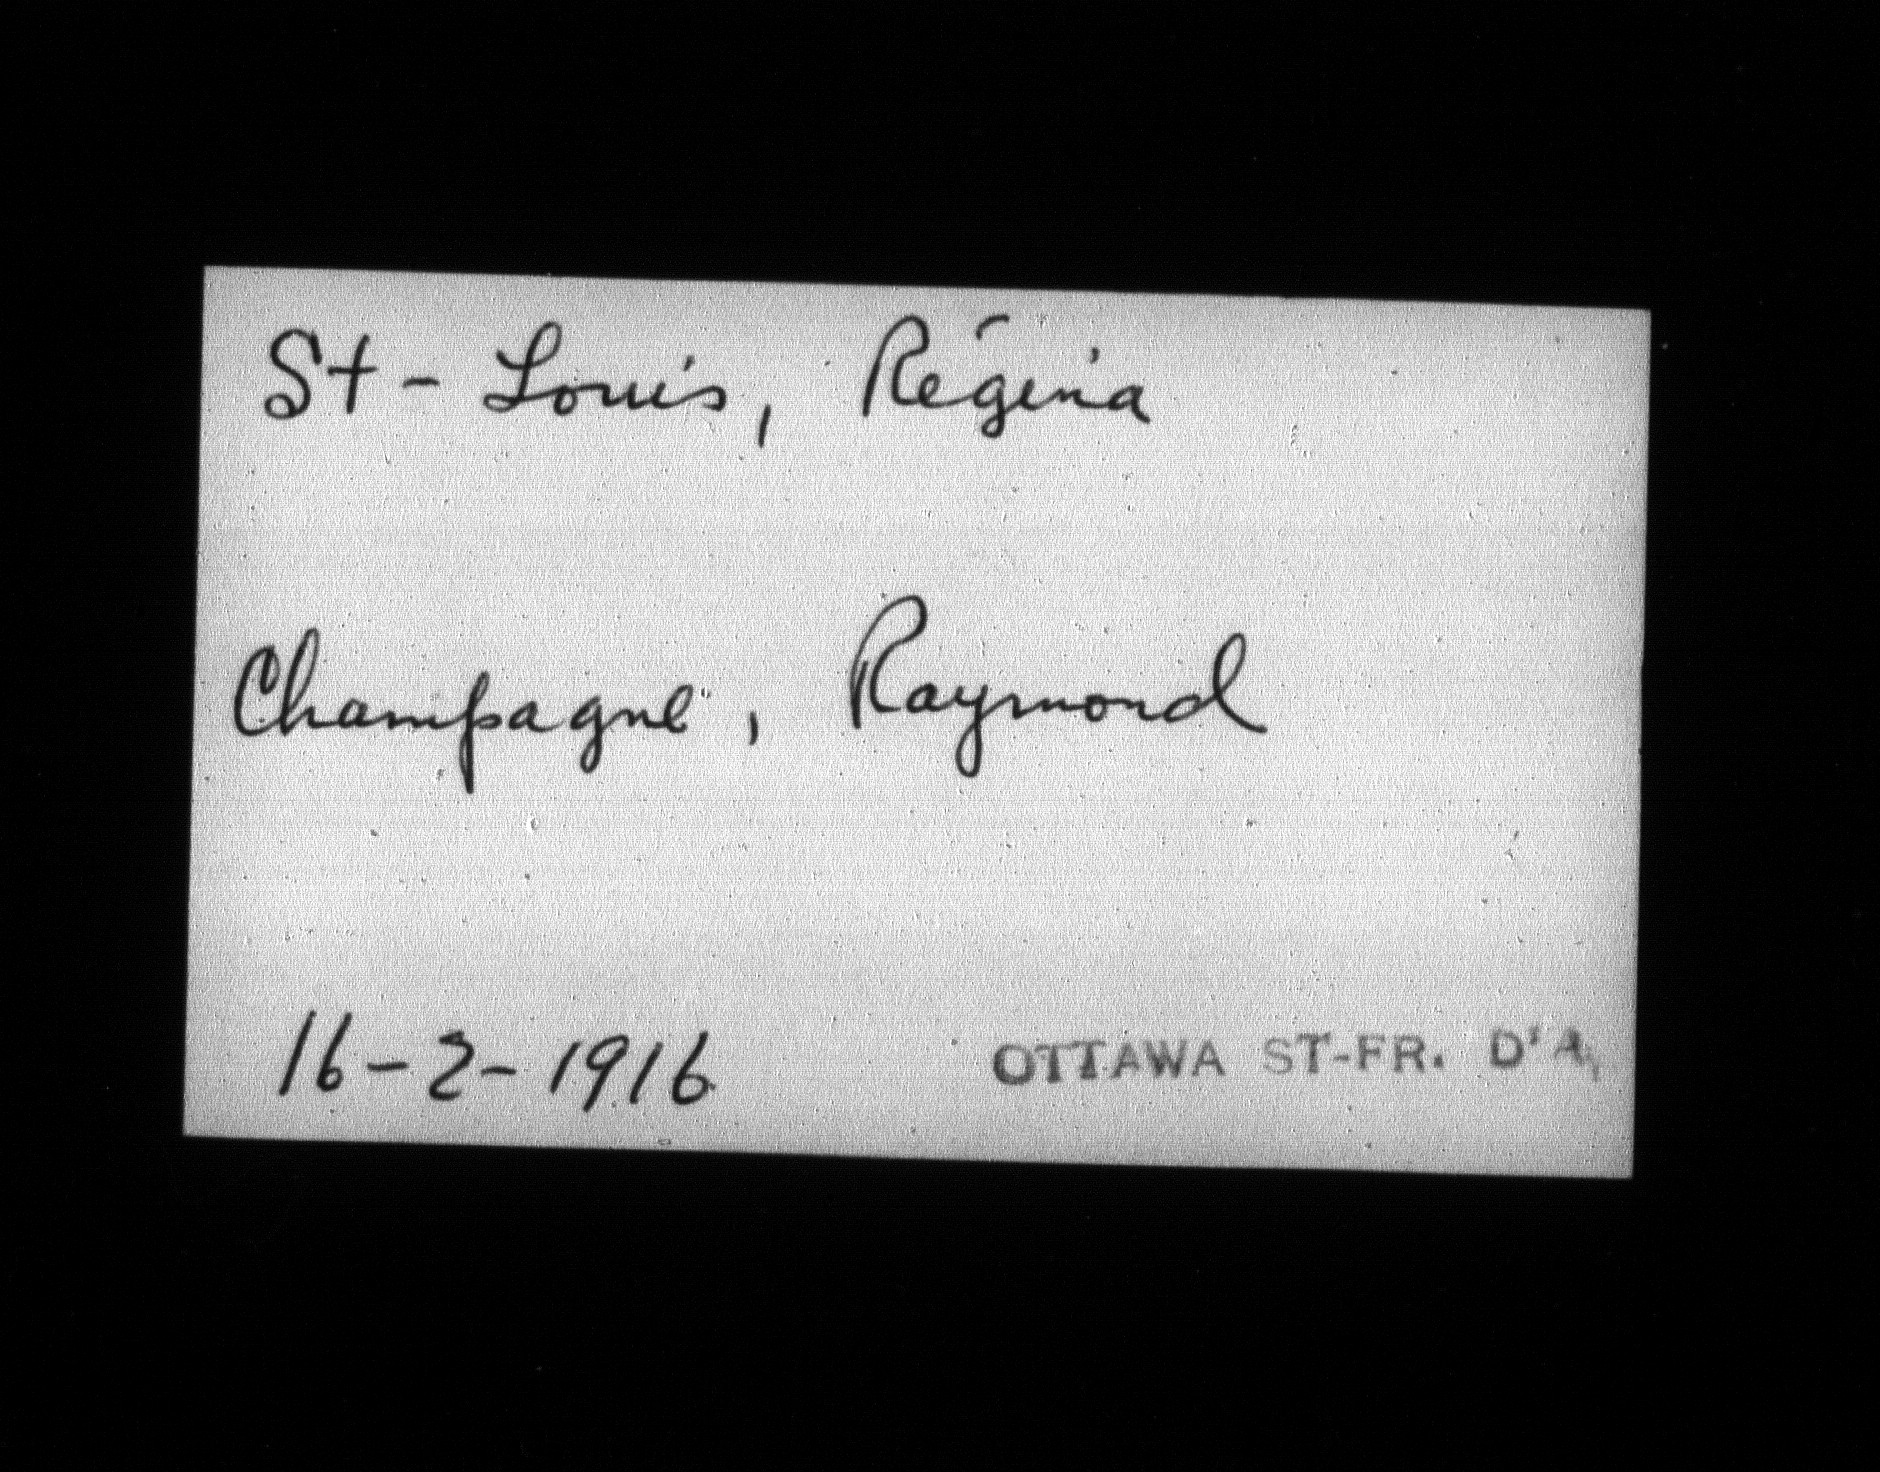 St-Louis, Régina
Champagne, Raymond
16-2-1916 OTTAWA ST-FR. D'A.